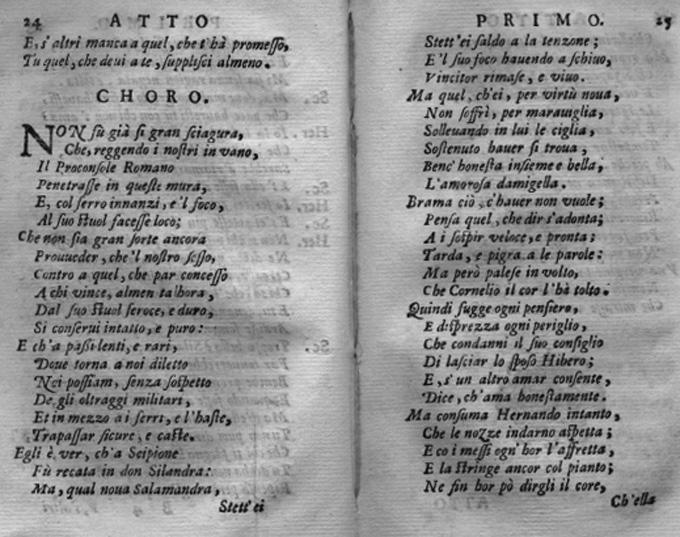 24 ATTO
E, s'altri manca a quel, che t'hà promesso,
Tu quel, che deui a te, supplisci almeno.
CHORO.
NON fù già sì gran sciagura,
Che, reggendo i nostri in vano,
Il Proconsole Romano
Penetrasse in queste mura,
E, col ferro innanzi, e'l foco,
Al suo stuol facesse loco;
Che non sia gran sorte ancora
Proueder, che'l nostro sesso,
Contro a quel, che par concesso
A chi vince, almen talhora,
Dal suo stuol feroce, e duro,
Si conserui intatto, e puro:
E ch'a passi lenti, e rari,
Doue torna a noi diletto
Noi possiam, senza sospetto
De gli oltraggi militari,
Et in mezzo ai ferri, e l'haste,
Trapassar sicure, e caste.
Egli è ver, ch'a Scipione
Fù recata in don Silandra:
Ma, qual noua Salamandra,
Stett'ei
PRIMO. 25
Stett'ei saldo a la tenzone;
E'l suo foco hauendo a schiuo,
Vincitor rimase, e viuo.
Ma quel, ch'ei, per virtù noua,
Non soffrì, per marauiglia,
Solleuando in lui le ciglia,
Sostenuto hauer si troua,
Benc'honesta insieme e bella,
L'amorosa damigella.
Brama ciò, c'hauer non vuole;
Pensa quel, che dir s'adonta;
A i sospir veloce, e pronta;
Tarda, e pigra a le parole:
Ma però palese in volto,
Che Cornelio il cor l'hà tolto.
Quindi fugge ogni pensiero,
E disprezza ogni periglio,
Che condanni il suo consiglio
Di lasciar lo sposo Hibero;
E, s'un altro amar consente,
Dice, ch'ama honestamente.
Ma consuma Hernando intanto,
Che le nozze indarno aspetta;
E co i messi ogn'hor l'affretta,
E la stringe ancor col pianto;
Ne fin hor pò dirgli il core,
Ch'ella